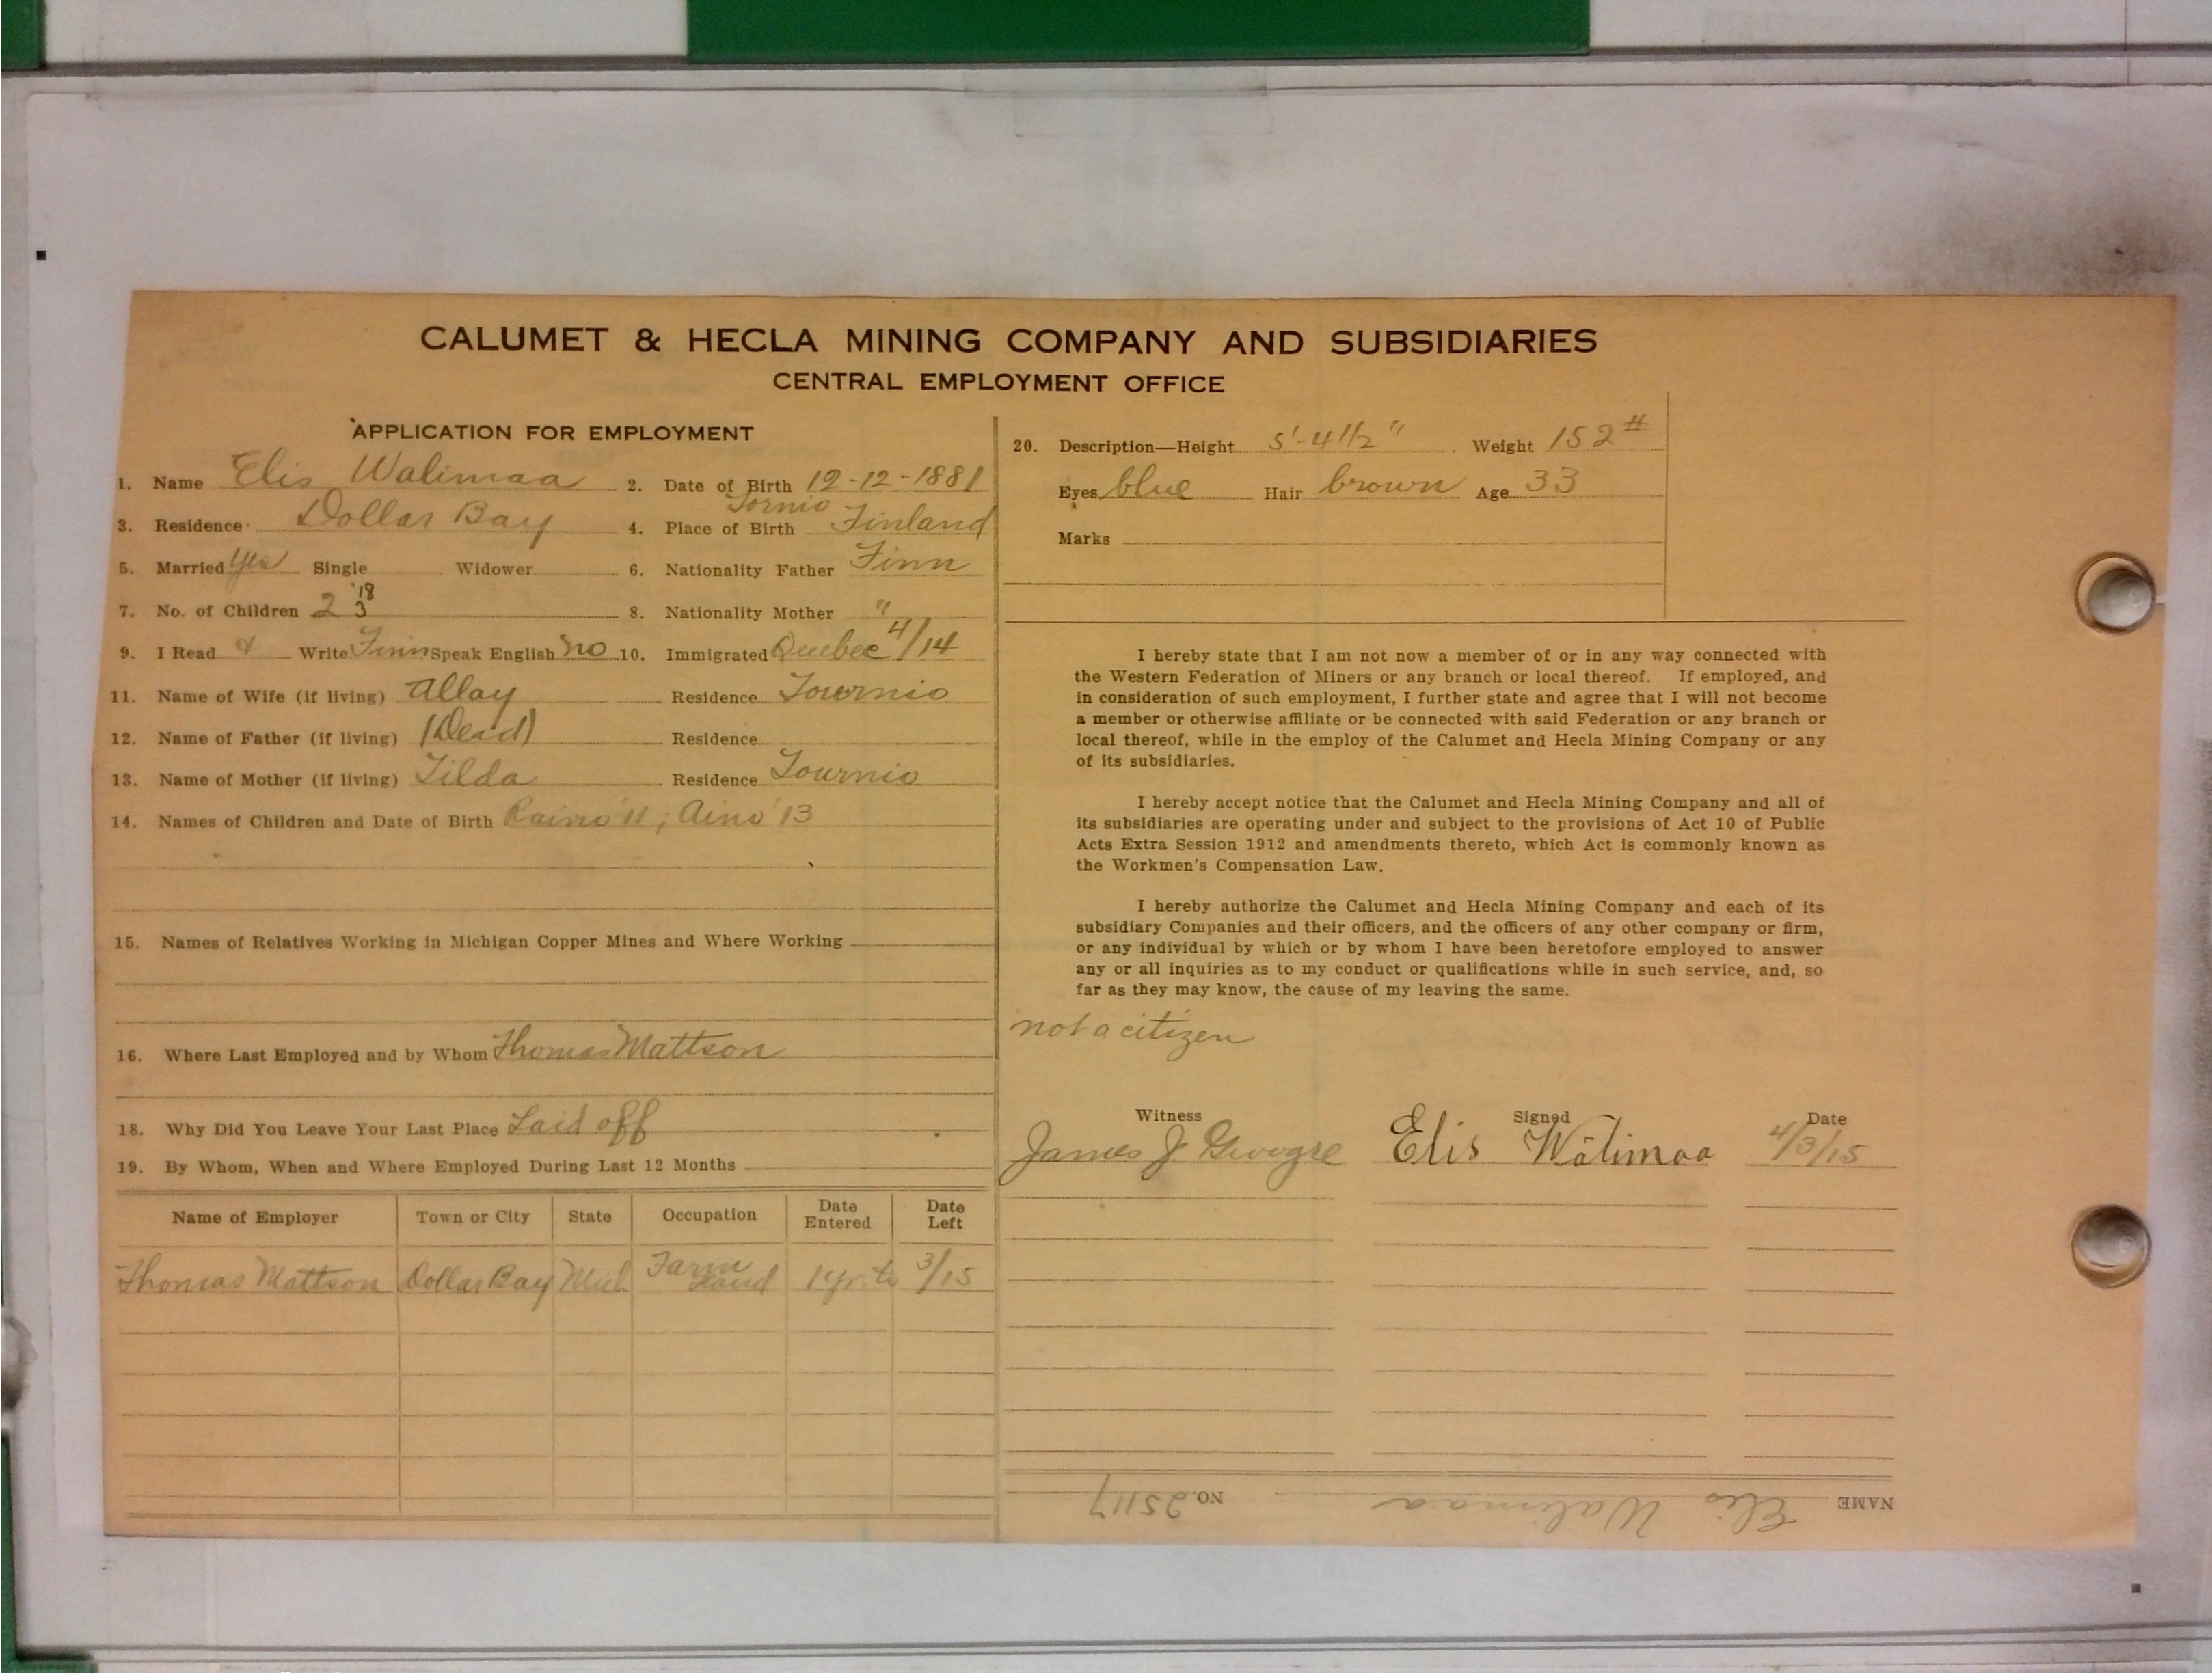 CALUMET & HECLA MINING COMPANY AND SUBSIDIARIES
CENTRAL EMPLOYMENT OFFICE
APPLICATION FOR EMPLOYMENT
1. Name Elis Walimaa 2. Date of Birth 12-12-1881
3. Residence Dollar Bay 4. Place of Birth Tornio Finland
5. Married yes Single Widower 6. Nationality Father Finn
7. No. of Children 2 3 '18 8. Nationality Mother "
9. I Read & Write Finn Speak English no 10. Immigrated Quebec 4/14
11. Name of Wife (if living) Allay Residence Tournio
12. Name of Father (if living) (Dead) Residence
13. Name of Mother (if living) Tilda Residence Tournio
14. Names of Children and Date of Birth '11; Aino '13
15. Names of Relatives Working in Michigan Copper Mines and Where Working
16. Where Last Employed and by Whom Thomas Mattson
18. Why Did You Leave Your Last Place Laid off
19. By Whom, When and Where Employed During Last 12 Months
Name of Employer Town or City State Occupation Date Entered Date Left
Thomas Mattson Dollar Bay Mich Farm Hand 1 yr. to 3/15
20. Description—Height 5'-4 1/2" Weight 152#
Eyes blue Hair brown Age 33
Marks
I hereby state that I am not now a member of or in any way connected with
the Western Federation of Miners or any branch or local thereof. If employed, and
in consideration of such employment, I further state and agree that I will not become
a member or otherwise affiliate or be connected with said Federation or any branch or
local thereof, while in the employ of the Calumet and Hecla Mining Company or any
of its subsidiaries.
I hereby accept notice that the Calumet and Hecla Mining Company and all of
its subsidiaries are operating under and subject to the provisions of Act 10 of Public
Acts Extra Session 1912 and amendments thereto, which Act is commonly known as
the Workmen's Compensation Law.
I hereby authorize the Calumet and Hecla Mining Company and each of its
subsidiary Companies and their officers, and the officers of any other company or firm,
or any individual by which or by whom I have been heretofore employed to answer
any or all inquiries as to my conduct or qualifications while in such service, and, so
far as they may know, the cause of my leaving the same.
not a citizen
Witness Signed Date
James J. Elis Wälimaa 4/3/15
NAME Elis Walimaa NO. 25117